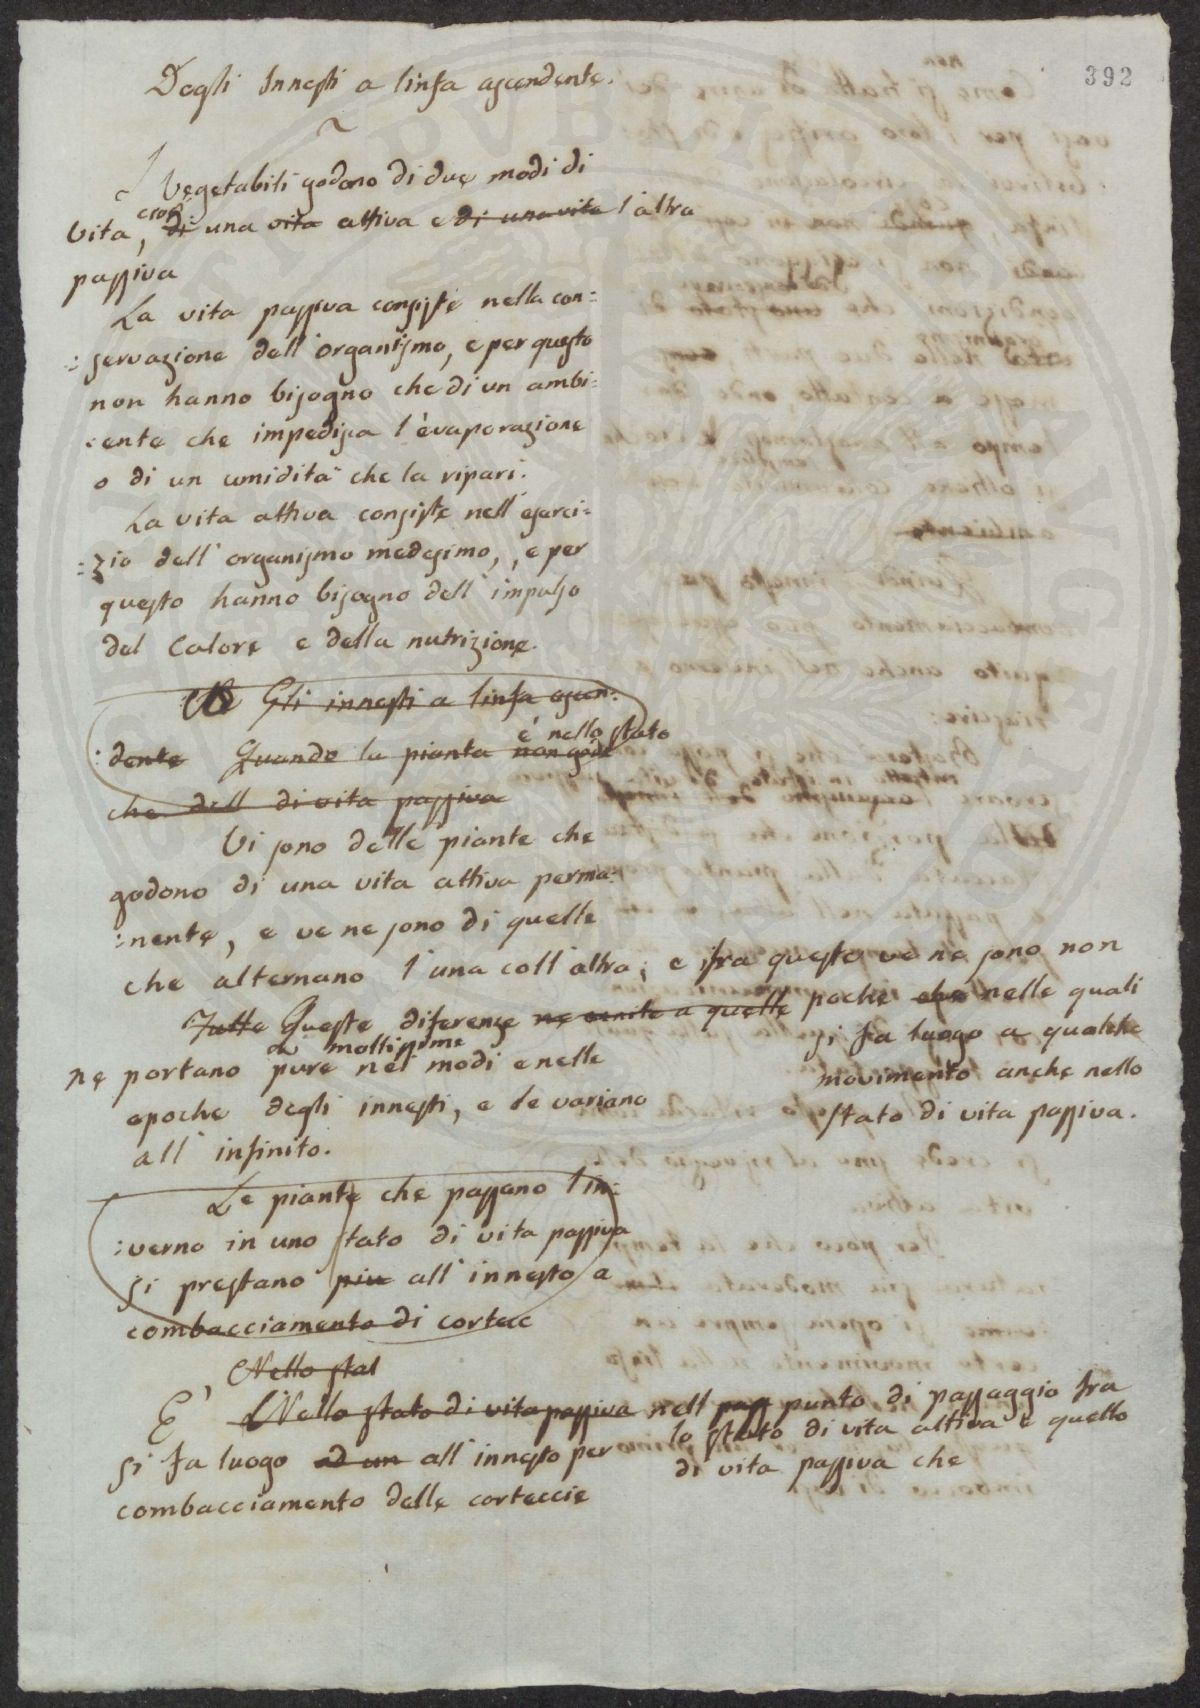 392
Degli Innesti a linfa ascendente.
I Vegetabili godono di due modi di
vita, cioè di una vita attiva e di una vita l'altra
passiva
La vita passiva consiste nella con=
=servazione dell'organismo, e per questo
non hanno bisogno che di un ambi=
=ente che impedisca l'evaporazione
o di un umidità che la ripari.
La vita attiva consiste nell'eserci=
=zio dell'organismo medesimo, e per
questo hanno bisogno dell'impulso
del Calore e della nutrizione.
Gli innesti a linfa ascen=
=dente Quando la pianta non gode è nello stato
che dell di vita passiva
Vi sono delle piante che
godono di una vita attiva perma=
=nente, e ve ne sono di quelle
che alternano l'una coll'altra; e fra queste ve ne sono non
poche che nelle quali
si fa luogo a qualche
movimento anche nello
stato di vita passiva.
Tutte Queste diferenze ne venite a quelle
ne portano pure di moltissime nei modi e nelle
epoche degli innesti, e le variano
all'infinito.
Le piante che passano l'in=
=verno in uno stato di vita passiva
si prestano piu all'innesto a
combacciamento di cortecc
Nello stat
E' Nello stato di vita passiva nell pass punto di passaggio fra
lo stato di vita attiva e quello
di vita passiva che
si fa luogo ad un all'innesto per
combacciamento delle corteccie